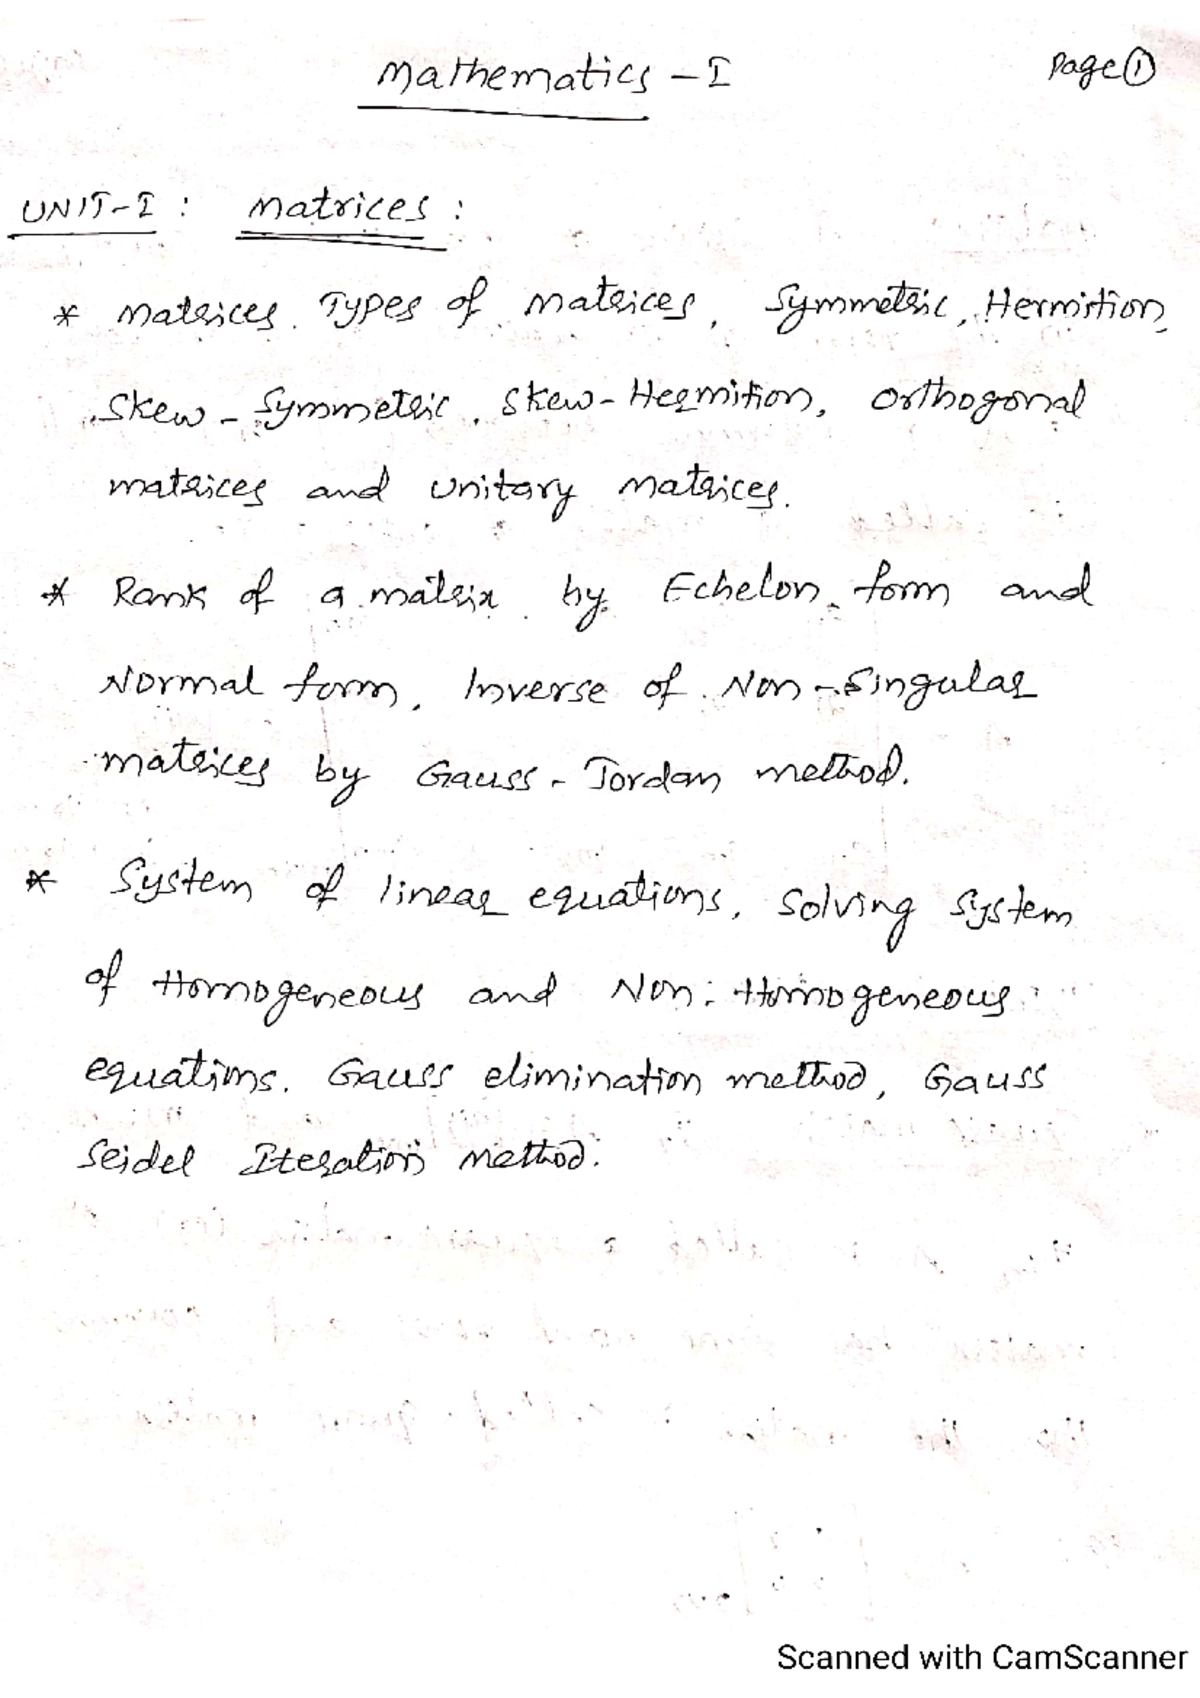 Mathematics - I
Page ①
UNIT-I : Matrices :
* Matrices. Types of matrices, Symmetric, Hermition,
Skew-Symmetric, Skew-Hermition, Orthogonal
matrices and Unitary matrices.
* Rank of a matrix by Echelon form and
Normal form, Inverse of Non-Singular
matrices by Gauss-Jordan method.
* System of linear equations, Solving System
of Homogeneous and Non-Homogeneous
equations. Gauss elimination method, Gauss
Seidel Iteration method.
Scanned with CamScanner